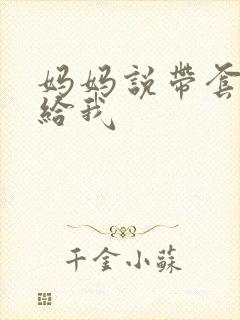 妈妈說帶套
給我
千金小蘇